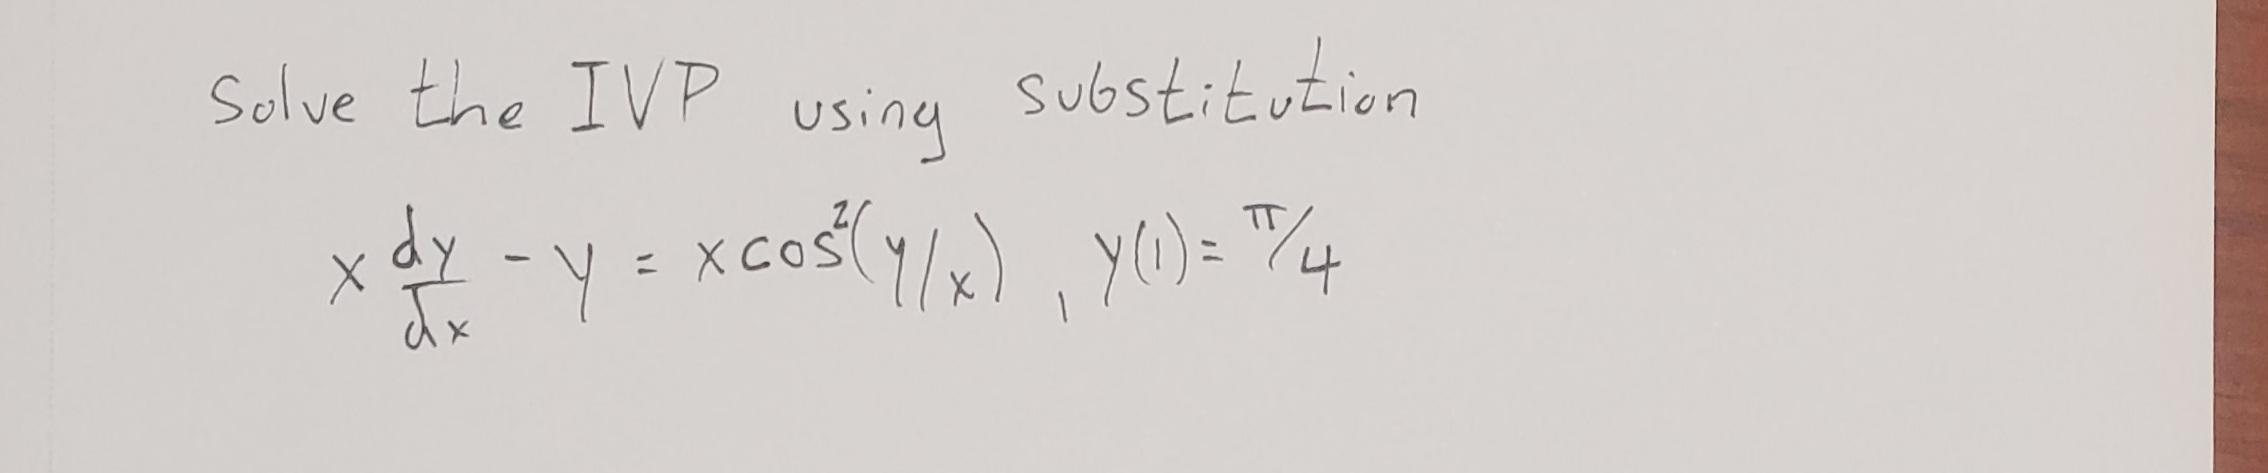 Solve the IVP using substitution
x dy/dx - y = x cos²(y/x) , y(1) = π/4